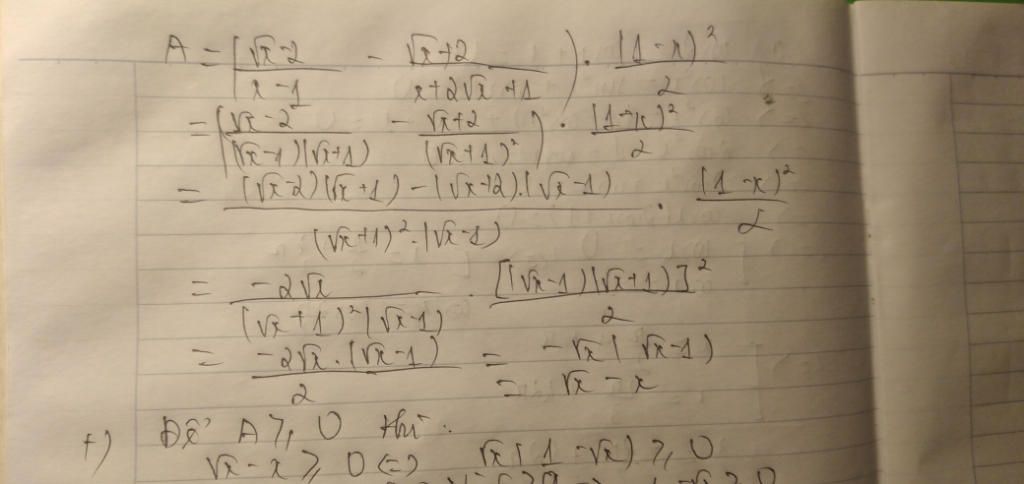 A = (√x-2 / x-1 - √x+2 / x+2√x+1) . (1-x)² / 2
= (√x-2 / (√x-1)(√x+1) - √x+2 / (√x+1)²) . (1-x)² / 2
= (√x-2)(√x+1) - (√x+2).(√x-1) / (√x+1)².(√x-1) . (1-x)² / 2
= -2√x / (√x+1)²(√x-1) . [(√x-1)(√x+1)]² / 2
= -2√x.(√x-1) / 2 = -√x(√x-1)
= √x - x
+) Để A ≥ 0 thì :
√x - x ≥ 0 <=> √x(1-√x) ≥ 0